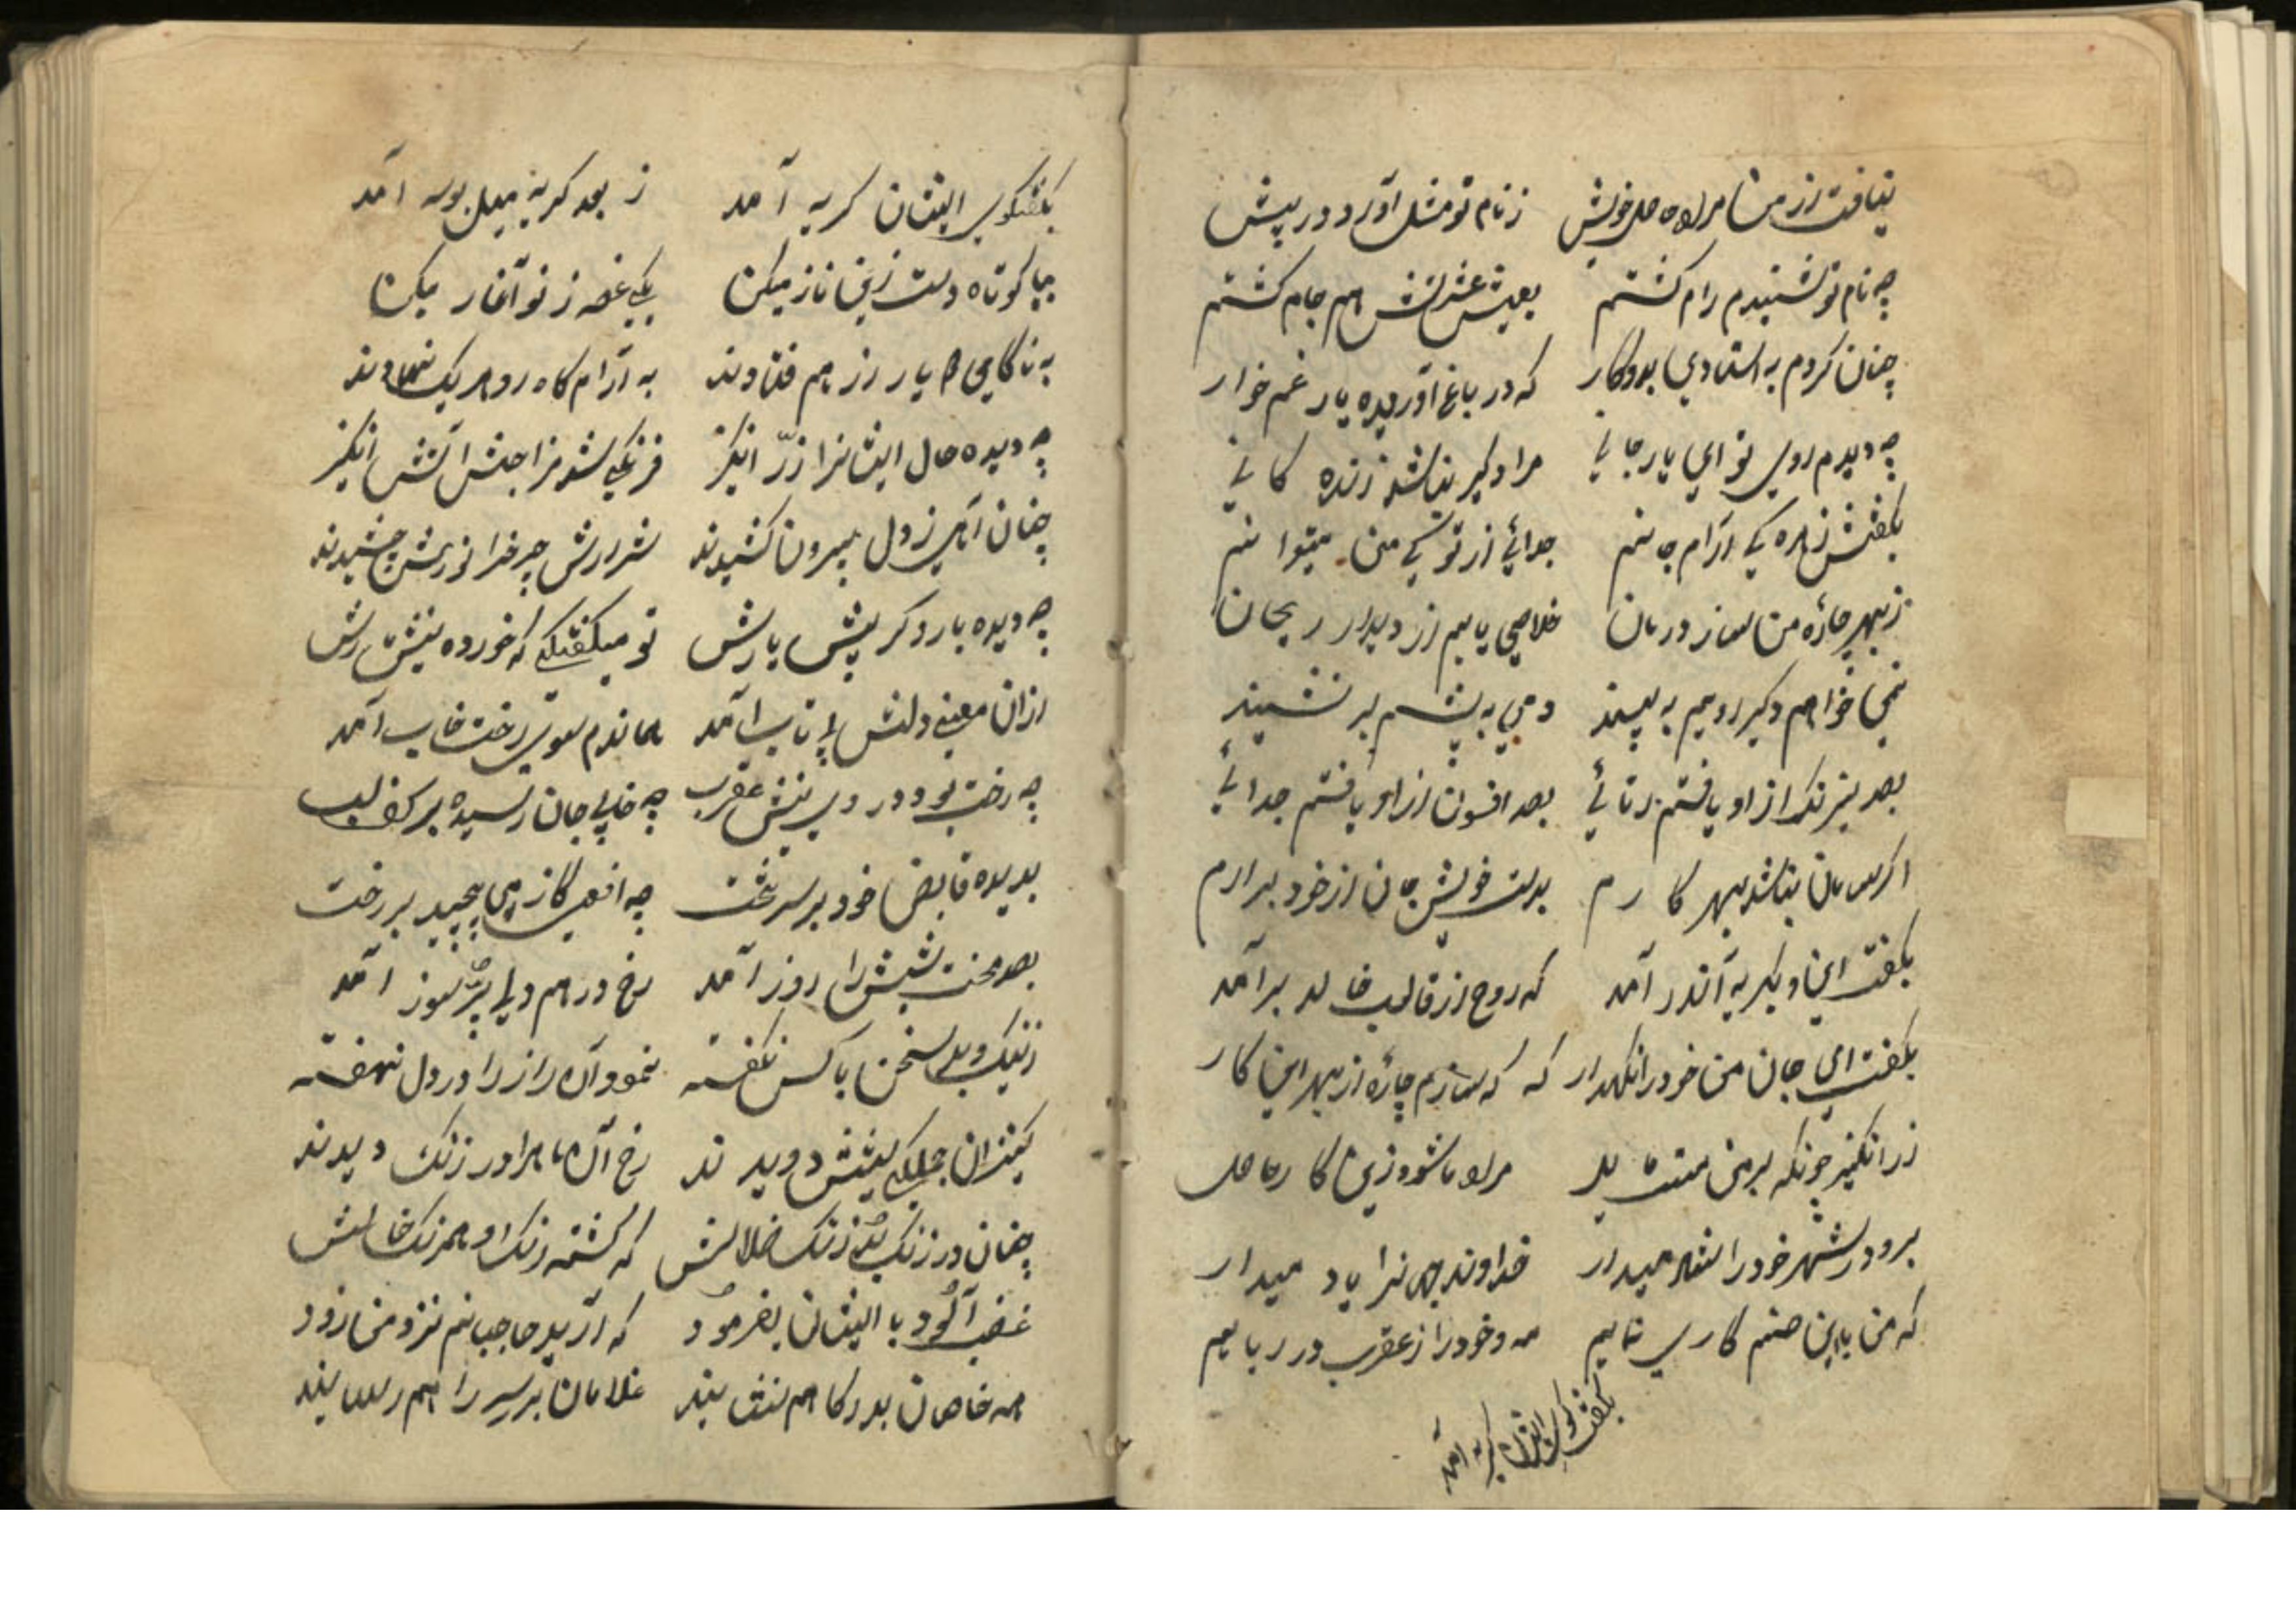 نیافت از من مراد حاصل خویش ز نام تو مثل آورد در پیش
چه نام تو شنیدم رام گشتم بعیش عشرتش هم جام گشتم
چنان کردم به استادی بدو کار که در باغ آوریده یار غم خوار
چه دیدم روی تو ای یار جانی مرا دگیر نباشد زنده کانی
بگفتش زهره کی آرام جانم جدائی از تو کی من میتوانم
ز بهر چاره من ساز درمان خلاصی یابم از دیدار ریحان
نمی خواهم دگیر رویم به بیند دمی به پیشم بر نشیند
بصد نیرنگ از او یافتم رهائی بصد افسون از او یافتم جدائی
اگر سامان نباشد بهر کارم بدست خویش جان از خود برارم
بگفت این و بگریه اندر آمد که روح از قالب خالد برآمد
بگفت ای جان من خود را نگهدار که سازم چاره از بهر این کار
زر انگیز چونکه بر من هست مراد ما شود زین کار حاصل
برو در شهر خود را شاد میدار خداوند جهان را یاد میدار
که من با این صنم کاری نمایم مه و خود را از عقرب در ربایم
بگفت گوی ایشان گریه آمد
بگفتگوی ایشان گریه آمد ز بعد گریه میل بوسه آمد
کوتاه دست زین ناز میکن یکی غصه ز نو آغاز میکن
به ناکامی یار از هم فتادند به آرام گاه رو هر یک نهادند
چه دیده حال ایشانرا زر انگیز فرنگی آتش انگیز
چنان آهی ز دل بیرون کشیدند شرارش چرخ را چشیدند
چه دیده بار دگر پیش یارش تو میگفتی که خورده نیش مارش
از آن معنی دلش بی تاب آمد سوی رخت خاب آمد
چه رخت بود در وی نیش عقرب چه خابی جان رسیده بر کف لب
بدیده قابض خود بر سر تخت چه افعی کاز می پیچید بر رخت
بصد محنت شبش را روز آمد رخ درهم دلی پر سوز آمد
ز نیک و بد سخن با کس نگفته نمود آن راز را در دل نهفته
کنیزان جملگی پیشش دویدند رخ آن ماه را در زنگ دیدند
چنان در زنگ شد زنگ که گشته زنگ او همرنگ خالش
غضب آلود با ایشان بفرمود که آرید حاجبانم نزد من زود
همه خاصان بدرگاهم نشانند غلامان بر سر راهم رسانند